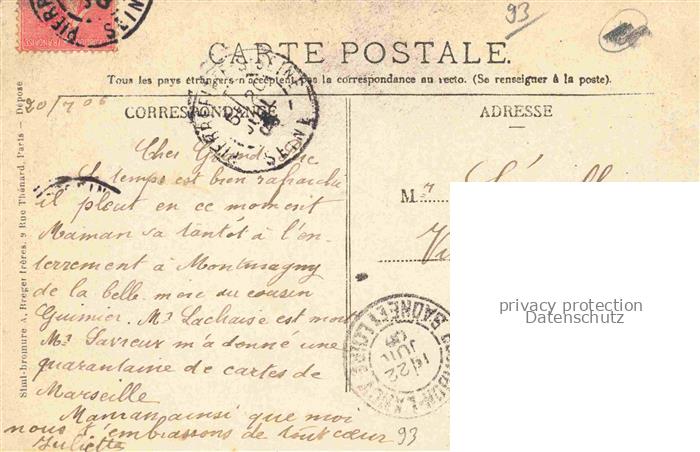 93
CARTE POSTALE.
Tous les pays étrangers n'acceptent pas la correspondance au recto. (Se renseigner à la poste).
20/7 06
CORRESPONDANCE
Cher Grand
temps est bien rafraichi
il pleut en ce moment
Maman va tantôt à l'en-
terrement à Montmagny
de la belle mère du cousin
Guimier. Mr Lachaise est mort
Mr Savreux m'a donné une
quarantaine de cartes de
Marseille
Maman ainsi que moi
nous t'embrassons de tout cœur
Juliette
93
ADRESSE
M
PIERREFITTE
SEINE
SAONE ET LOIRE
22
JUIL
06
Simi-bromure A. Breger frères, 9 Rue Thénard, Paris — Déposé
privacy protection
Datenschutz